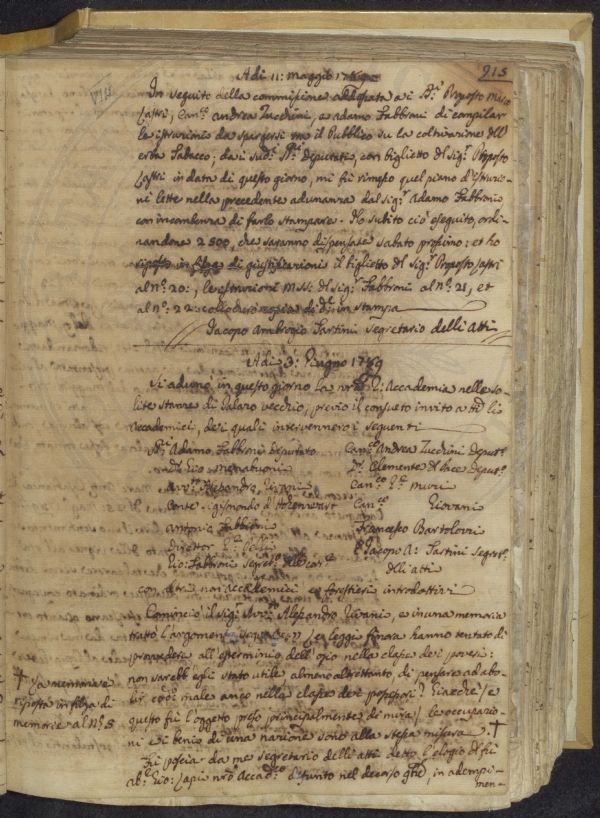 915
VIII
Adi 11: Maggio 1789
In seguito della commissione addossata a i SS.ri Proposto Marco
Lastri, Can.co Andrea Zucchini, e Adamo Fabbroni di compilar
le istruzioni da spargersi tra il Pubblico su la coltivazione dell'
erba Tabacco; da i sud.i SS.ri deputati, con biglietto del Sig.r Proposto
Lastri in data di questo giorno, mi fù rimesso quel piano d'Istruzio-
ni lette nella precedente adunanza dal Sig.r Adamo Fabbroni
con incombenza di farlo stampare. Ho subito ciò eseguito, ordi-
nandone 2500, che saranno dispensate sabato prossimo: et ho
riposto in filza di giustificazioni il biglietto del Sig.r Proposto Lastri
al n.o 20:, le istruzioni MSS: del Sig.r Fabbroni al n.o 21, et
al n.o 22: copia di d.e in stampa
Jacopo Ambrogio Tartini Segretario delli Atti
Adi 3: Giugno 1789
Si adunò in questo giorno la R: Accademia nelle so-
lite stanze di Palazzo vecchio, previo il consueto invito a tt.i li
Accademici, de i quali intervennero i seguenti
SS.ri Adamo Fabbroni Deputato
Can.co Andrea Zucchini Deput.o
Gio: Menabuoni
Clemente Deput.o
Avv.o Alessandro Rivani
Can.co
Conte Sigismondo d'Hohenwart
Can.co Giovani
Antonio Fabbrini
Francesco Bartolozzi
Direttor
e Jacopo A: Tartini Segret.o
Gio: Fabbroni Segret.o delle Cor.e
delli atti
con altri non Accademici e forestieri introdottivi
Cominciò il Sig.r Avv.o Alessandro Rivani, e in una memoria
trattò l'argomento seguente: Se le leggi finora hanno tentato di
provvedere all'esterminio dell'ozio nella classe dei poveri:
non sarebb'egli stato utile almeno altrettanto di pensare ad abo-
lir cod.o male anco nella classe dei possessori? Giacchè (e
questo fù l'oggetto preso principalmente di mira) le occupazio-
ni e i beni di una nazione sono alla stessa misura. †
† La memoria è
riposta in filza di
memorie al N.o 8
Fù poscia da me segretario delli atti detto l'elogio del fù
Ab.e Gio: Lapi nro Accad.co defunto nel decorso , in adempi-
men-